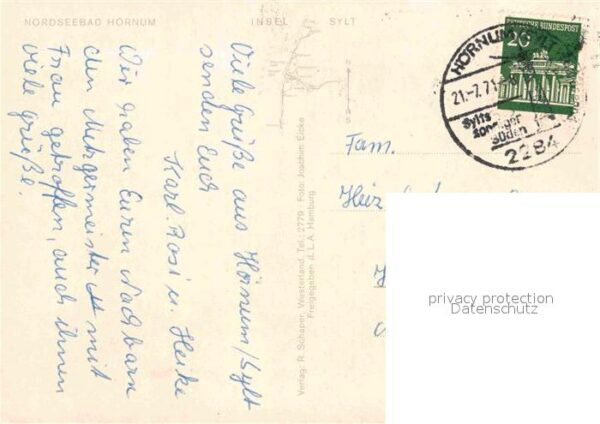 NORDSEEBAD HÖRNUM
INSEL SYLT
Viele Grüße aus Hörnum/Sylt
senden Euch
Karl. Rosi u. Heike
Wir haben Euren Nachbarn
den Metzgermeister mit
Frau getroffen, auch ihnen
viele Grüße.
Verlag: R. Schaper, Westerland, Tel.: 2779 Foto: Joachim Eicke
Freigegeben d. L. A. Hamburg
HÖRNUM
21.-7.71
Sylts
sonniger
Süden
2284
DEUTSCHE BUNDESPOST
20
Fam.
privacy protection
Datenschutz